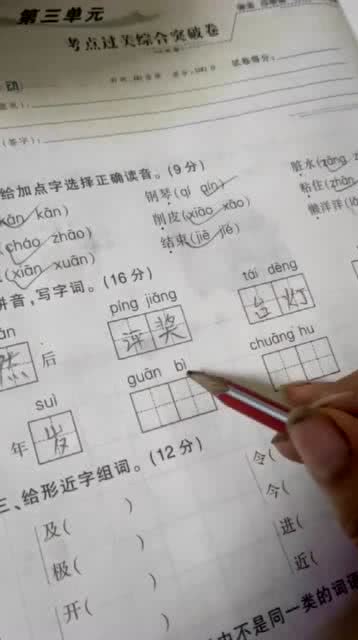 第三单元
考点过关综合突破卷
(签字):
给加点字选择正确读音。(9分)
kàn kān) 钢琴(qí qín) 脏水(zāng
cháo zhāo) 削皮(xiāo xāo) 粘住(zhān
(xiān xuān) 结束(jiē jié) 懒洋洋(
拼音,写字词。(16分)
píng jiǎng tái dēng
然后 评奖 台灯
suì guān bì chuāng hu
年岁
三、给形近字组词。(12分)
及( ) 令(
极( ) 今(
开( ) 进(
近(
中不是同一类的词语